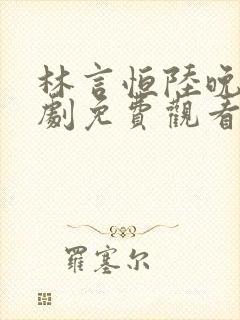 林言恒陸晚
劇免費觀看
羅塞尔